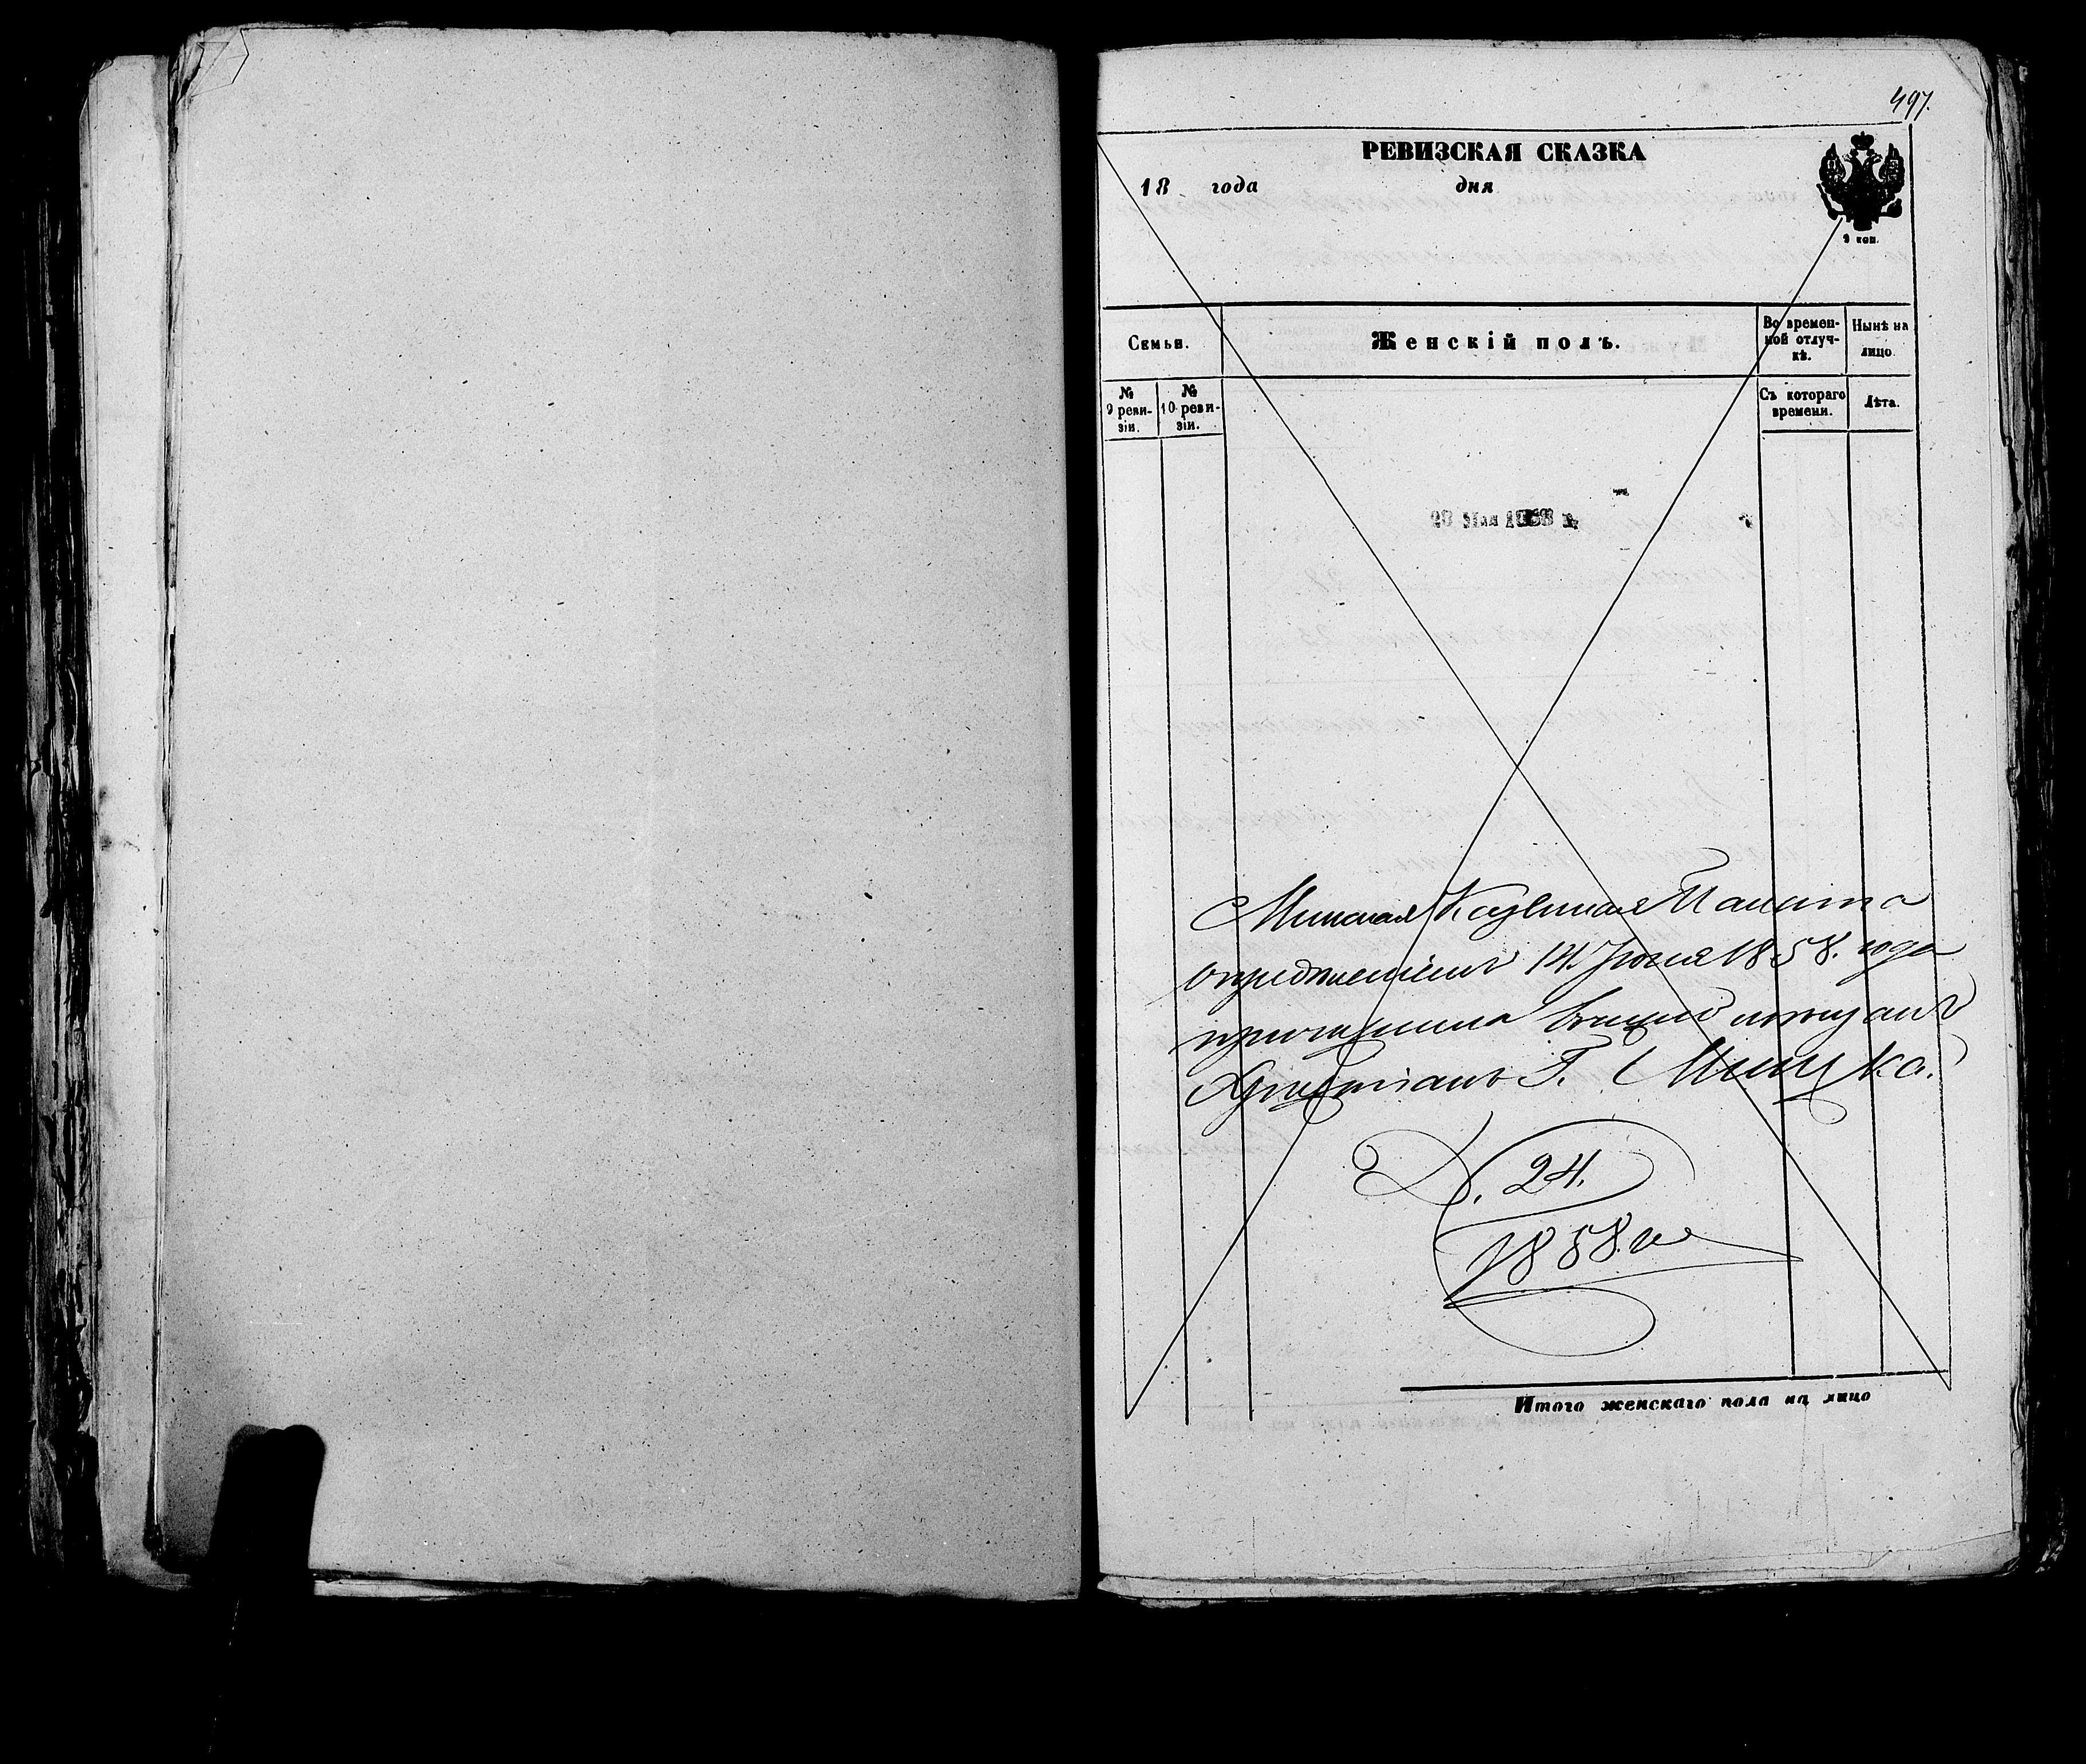 497.
РЕВИЗСКАЯ СКАЗКА
18 года дня
9 коп.
Семьи.
Женскій полъ.
Во времен-
ной отлуч-
кѣ.
Нынѣ на
лицо.
№
9 реви-
зіи.
№
10 реви-
зіи.
Съ котораго
времени.
Лѣта.
28 Мая 1858 г.
Минская Казенная Палата
опредѣленіемъ 14 Іюня 1858. года
причислила
Христіанъ Г. Минска.
Д. 24.
1858. го
Итого женскаго пола на лицо